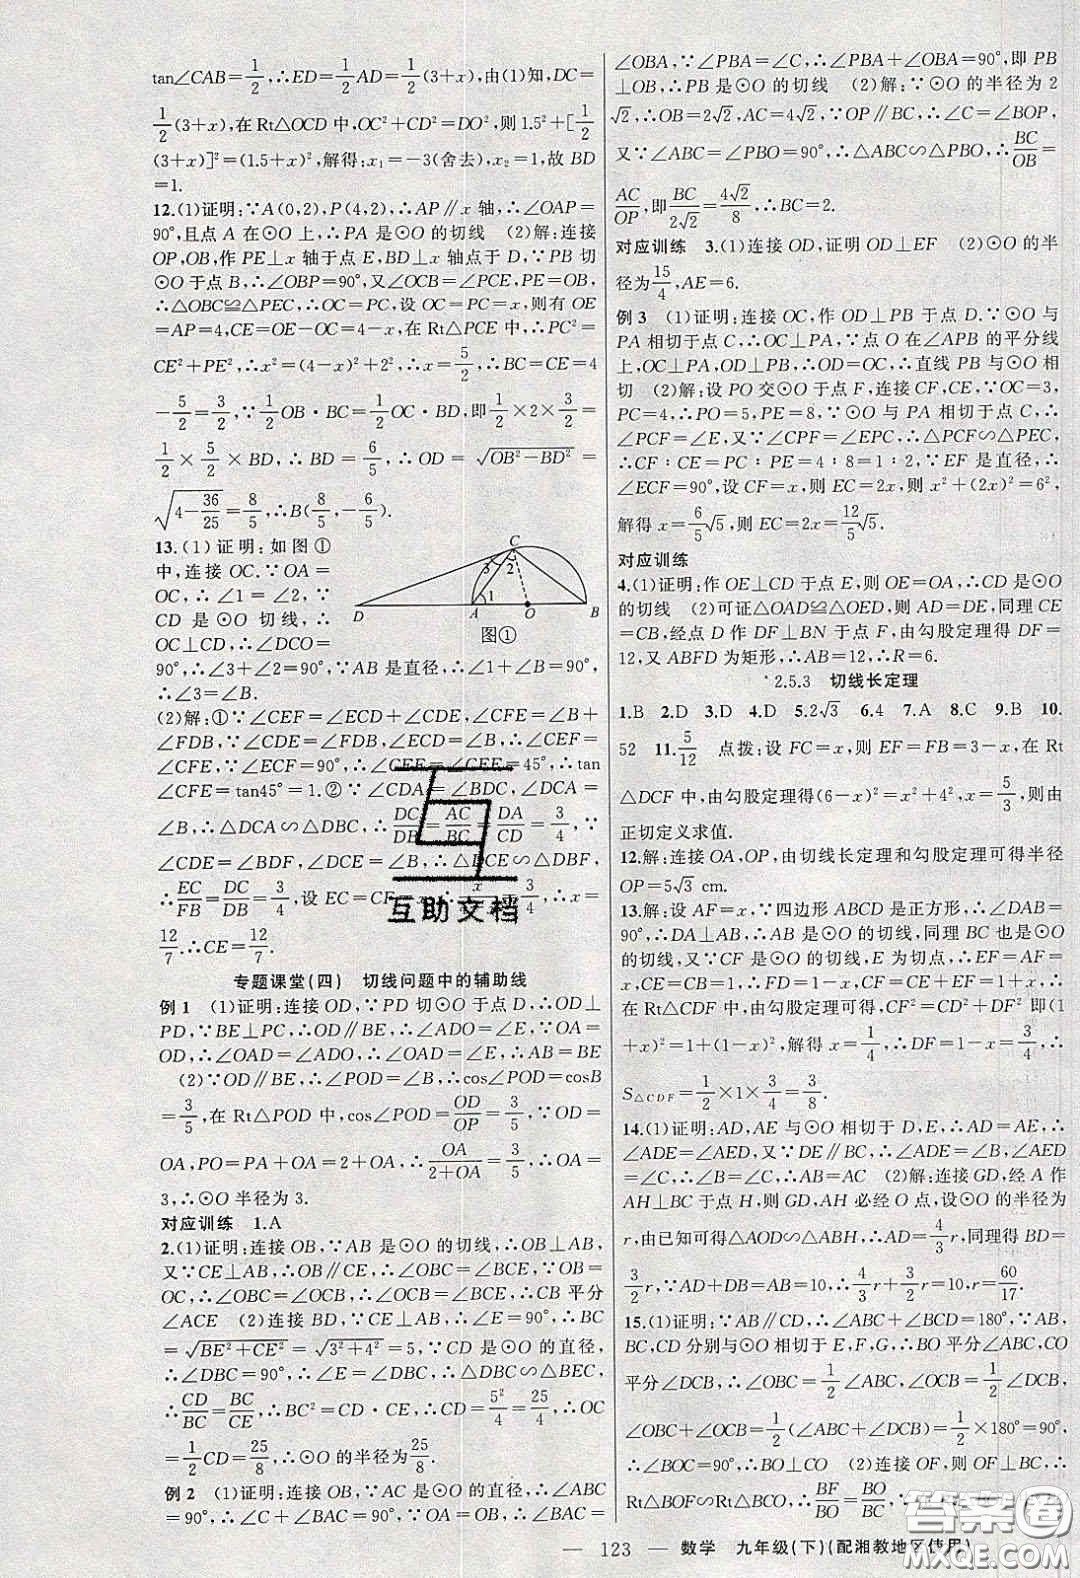 tan∠CAB=1/2,∴ED=1/2AD=1/2(3+x),由(1)知,DC=
1/2(3+x),在Rt△OCD中,OC²+CD²=DO²,则1.5²+[1/2
(3+x)]²=(1.5+x)²,解得:x₁=-3(舍去),x₂=1,故BD
=1.
12.(1)证明:∵A(0,2),P(4,2),∴AP∥x轴,∴∠OAP=
90°,且点A在⊙O上,∴PA是⊙O的切线 (2)解:连接
OP,OB,作PE⊥x轴于点E,BD⊥x轴点于D,∵PB切
⊙O于点B,∴∠OBP=90°,又∠OCB=∠PCE,PE=OB,
∴△OBC≌△PEC,∴OC=PC,设OC=PC=x,则有OE
=AP=4,CE=OE-OC=4-x,在Rt△PCE中,∴PC²=
CE²+PE²,∴x²=(4-x)²+2²,∴x=5/2,∴BC=CE=4
-5/2=3/2,∵1/2OB·BC=1/2OC·BD,即1/2×2×3/2=
1/2×5/2×BD,∴BD=6/5,∴OD=√(OB²-BD²)=
√(4-36/25)=8/5,∴B(8/5,-6/5).
13.(1)证明:如图①
中,连接OC.∵OA=
OC,∴∠1=∠2,∵
CD是⊙O切线,∴
OC⊥CD,∴∠DCO=
D A O B C 1 2 3
图①
90°,∴∠3+∠2=90°,∵AB是直径,∴∠1+∠B=90°,
∴∠3=∠B.
(2)解:①∵∠CEF=∠ECD+∠CDE,∠CFE=∠B+
∠FDB,∵∠CDE=∠FDB,∠ECD=∠B,∴∠CEF=
∠CFE,∵∠ECF=90°,∴∠CEF=∠CFE=45°,∴tan
∠CFE=tan45°=1.②∵∠CDA=∠BDC,∠DCA=
∠B,∴△DCA∽△DBC,∴DC/DB=AC/BC=DA/CD=3/4,∵
∠CDE=∠BDF,∠DCE=∠B,∴△DCE∽△DBF,
∴EC/FB=DC/DB=3/4,设EC=CF=x,∴x/ =3/4,∴x=
12/7,∴CE=12/7.
专题课堂(四) 切线问题中的辅助线
例1 (1)证明:连接OD,∵PD切⊙O于点D,∴OD⊥
PD,∵BE⊥PC,∴OD∥BE,∴∠ADO=∠E,∵OA=
OD,∴∠OAD=∠ADO,∴∠OAD=∠E,∴AB=BE
(2)∵OD∥BE,∴∠POD=∠B,∴cos∠POD=cosB
=3/5,在Rt△POD中,cos∠POD=OD/OP=3/5,∵OD=
OA,PO=PA+OA=2+OA,∴OA/(2+OA)=3/5,∴OA=
3,∴⊙O半径为3.
对应训练 1.A
2.(1)证明:连接OB,∵AB是⊙O的切线,∴OB⊥AB,
又∵CE⊥AB,∴OB∥CE,∴∠OBC=∠BCE,∵OB=
OC,∴∠OBC=∠OCB,∴∠OCB=∠BCE,∴CB平分
∠ACE (2)连接BD,∵CE⊥AB,∴∠E=90°,∴BC
=√(BE²+CE²)=√(3²+4²)=5,∵CD是⊙O的直径,
∴∠DBC=90°,∴∠E=∠DBC,∴△DBC∽△BEC,
∴CD/BC=BC/CE,∴BC²=CD·CE,∴CD=5²/4=25/4,∴OC
=1/2CD=25/8,∴⊙O的半径为25/8.
例2 (1)证明:连接OB,∵AC是⊙O的直径,∴∠ABC
=90°,∴∠C+∠BAC=90°,∵OA=OB,∴∠BAC=
∠OBA,∵∠PBA=∠C,∴∠PBA+∠OBA=90°,即PB
⊥OB,∴PB是⊙O的切线 (2)解:∵⊙O的半径为2
√2,∴OB=2√2,AC=4√2,∵OP∥BC,∴∠C=∠BOP,
又∵∠ABC=∠PBO=90°,∴△ABC∽△PBO,∴BC/OB=
AC/OP,即BC/2√2=4√2/8,∴BC=2.
对应训练 3.(1)连接OD,证明OD⊥EF (2)⊙O的半
径为15/4,AE=6.
例3 (1)证明:连接OC,作OD⊥PB于点D.∵⊙O与
PA相切于点C,∴OC⊥PA,∵点O在∠APB的平分线
上,OC⊥PA,OD⊥PB,∴OD=OC,∴直线PB与⊙O相
切 (2)解:设PO交⊙O于点F,连接CF,CE,∵OC=3,
PC=4,∴PO=5,PE=8,∵⊙O与PA相切于点C,∴
∠PCF=∠E,又∵∠CPF=∠EPC,∴△PCF∽△PEC,
∴CF∶CE=PC∶PE=4∶8=1∶2,∵EF是直径,∴
∠ECF=90°,设CF=x,则EC=2x,则x²+(2x)²=6²,
解得x=6/5√5,则EC=2x=12/5√5.
对应训练
4.(1)证明:作OE⊥CD于点E,则OE=OA,∴CD是⊙O
的切线 (2)可证△OAD≌△OED,则AD=DE,同理CE
=CB,经点D作DF⊥BN于点F,由勾股定理得DF=
12,又ABFD为矩形,∴AB=12,∴R=6.
2.5.3 切线长定理
1.B 2.D 3.D 4.D 5.2√3 6.4 7.A 8.C 9.B 10.
52 11.5/12 点拨:设FC=x,则EF=FB=3-x,在Rt
△DCF中,由勾股定理得(6-x)²=x²+4²,x=5/3,则由
正切定义求值.
12.解:连接OA,OP,由切线长定理和勾股定理可得半径
OP=5√3 cm.
13.解:设AF=x,∵四边形ABCD是正方形,∴∠DAB=
90°,∴DA⊥AB,∴AD是⊙O的切线,同理BC也是⊙O
的切线,又∵CF是⊙O的切线,E为切点,∴EF=AF=
x,CE=CB=1,∴FD=1-x,CF=CE+EF=1+x,∴在
Rt△CDF中,由勾股定理可得,CF²=CD²+DF²即(1
+x)²=1+(1-x)²,解得x=1/4,∴DF=1-x=3/4,∴
S△CDF=1/2×1×3/4=3/8.
14.(1)证明:AD,AE与⊙O相切于D,E,∴AD=AE,∴
∠ADE=∠AED,又∵DE∥BC,∴∠ADE=∠B,∠AED
=∠C,∴∠B=∠C,∴AB=AC (2)解:连接GD,经A作
AH⊥BC于点H,则GD,AH必经O点,设⊙O的半径为
r,由已知可得△AOD∽△ABH,∴AD=4/3r,同理得BD=
3/2r,∵AD+DB=AB=10,∴4/3r+3/2r=10,r=60/17.
15.(1)证明:∵AB∥CD,∴∠ABC+∠BCD=180°,∵AB,
BC,CD分别与⊙O相切于E,F,G,∴BO平分∠ABC,CO
平分∠DCB,∴∠OBC=1/2∠ABC,∠OCB=1/2∠DCB,∴
∠OBC+∠OCB=1/2(∠ABC+∠DCB)=1/2×180°=90°,
∴∠BOC=90°,∴BO⊥CO (2)连接OF,则OF⊥BC,∴
Rt△BOF∽Rt△BCO,∴BF/BO=BO/BC,∵
互助文档
答案圈
MXQE.COM
— 123 — 数学 九年级(下)(配湘教地区使用)